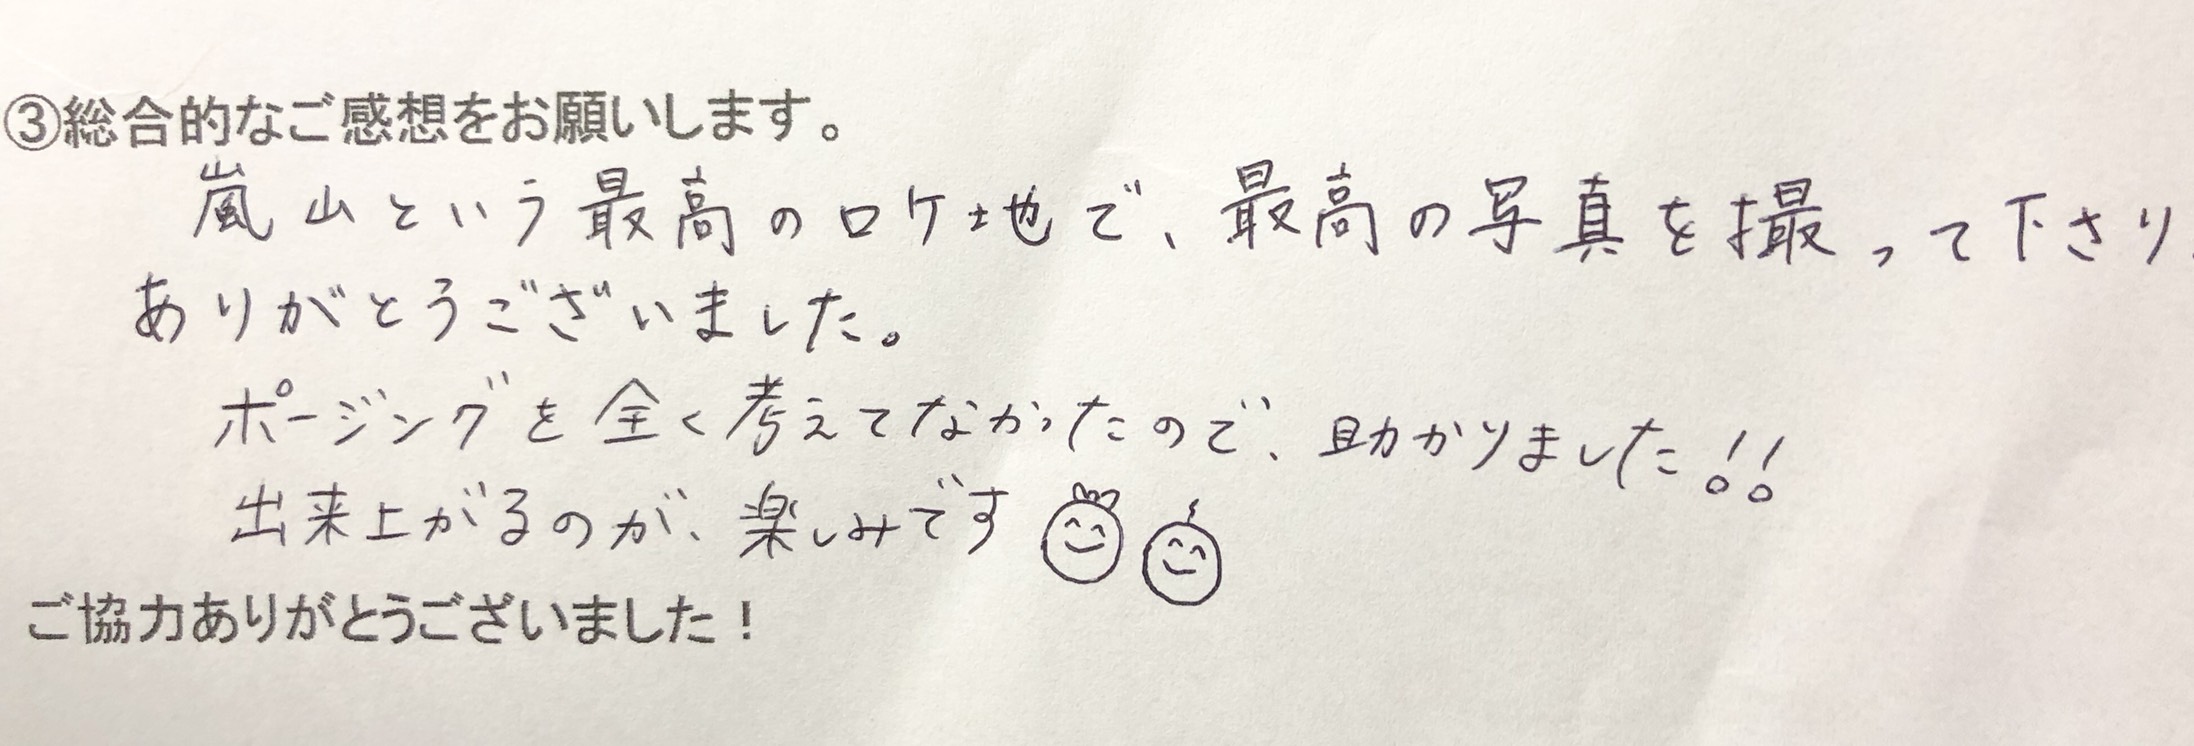 ③総合的なご感想をお願いします。
嵐山という最高のロケ地で、最高の写真を撮って下さり、
ありがとうございました。
ポージングを全く考えてなかったので、助かりました!!
出来上がるのが、楽しみです
ご協力ありがとうございました！